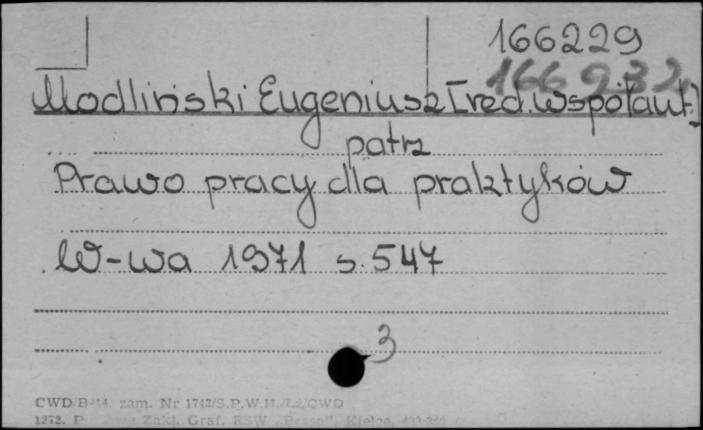 166229
166232
Modliński Eugeniusz [red. współaut.]
patrz
Prawo pracy dla praktyków
W-wa 1971 s. 547
3
CWD/B-14. zam. Nr 1742/S.P.W.H./Łż/CWD
1272. Zakł. Graf. RSW „Prasa", Kielce,